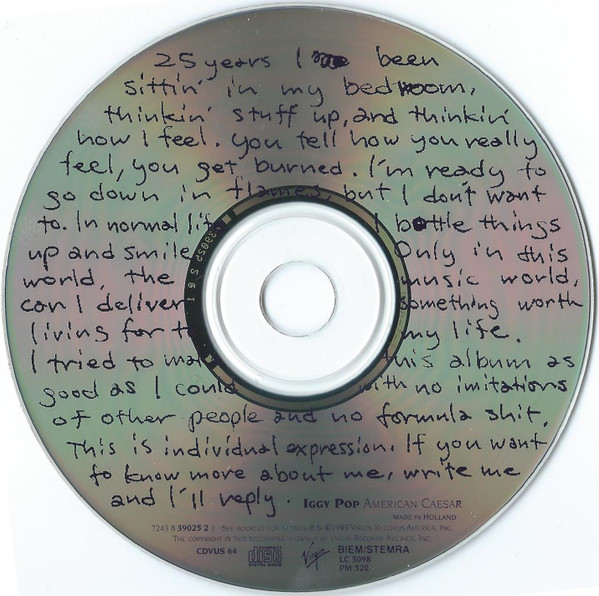 25 years I been
sittin' in my bedroom,
thinkin' stuff up, and thinkin'
how I feel. you tell how you really
feel, you get burned. I'm ready to
go down in flames, but I don't want
to. In normal lif I bottle things
up and smile Only in this
world, the music world,
can I deliver something worth
living for t my life.
I tried to mak this album as
good as I could with no imitations
of other people and no formula shit.
This is individual expression. If you want
to know more about me, write me
and I'll reply. IGGY POP AMERICAN CAESAR
MADE IN HOLLAND
7243 8 39025 2 1 SEE BOOKLET FOR ℗ & © 1993 VIRGIN RECORDS AMERICA, INC.
THE COPYRIGHT IN THIS RECORDING IS OWNED BY VIRGIN RECORDS AMERICA, INC.
CDVUS 64 COMPACT disc DIGITAL AUDIO Virgin BIEM/STEMRA
LC 3098
PM 520